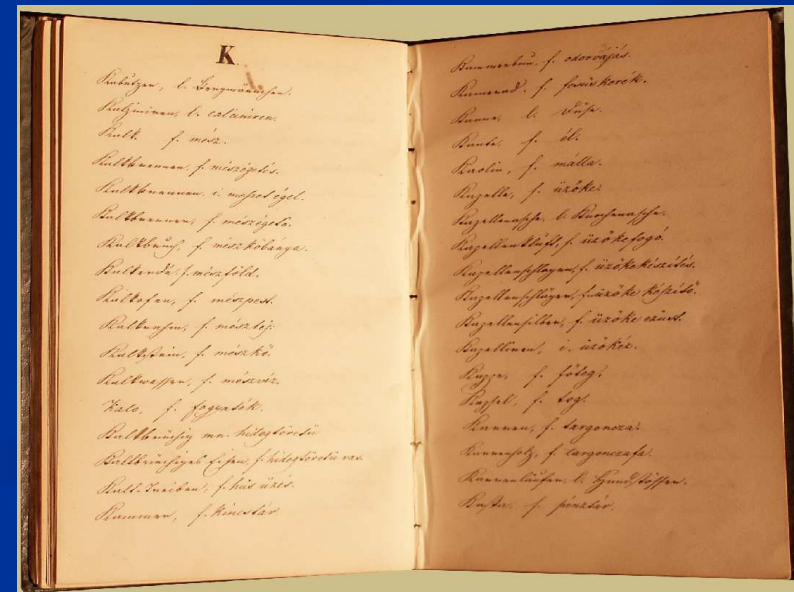 K.
Kabützen, l. Bergmännchen.
Kalziniren, l. calciniren.
Kalk f. mész.
Kalkbrennen, f. mészégetés.
Kalkbrennen, i. meszet éget.
Kalkbrenner, f. mészégető.
Kalkbruch, f. mészkőbánya.
Kalkerde, f. mészföld.
Kalkofen, f. mészpest.
f. mésztej.
Kalkstein, f. mészkő.
Kalkwasser, f. mészvíz.
Kalo, f. fogyaték.
Kaltbrüchig mn. hidegtöretű
Kaltbrüchiges Eisen, f. hidegtöretű vas.
Kalt-Treiben, f. hűs üzés.
Kammer, f. Kincstár
f. odorvájás.
Kamerad, f.
Kanne, l. Düse.
Kante, f. él.
Kaolin, f. málla.
Kapelle, f. üzőke.
Kapellenasche, l.
Kapellenkluft, f. üzőkefogó.
Kapellenschlagen, f. üzőkekészítés.
Kapellenschläger, f. üzőke készítő.
Kapellensilber, f. üzőke ezüst.
i. üzőkéz.
Kappe, f. főteg.
Kapsel, f. tog.
Karren, f. targoncza.
Karrenholz, f. targonczafa.
Karrenläufer, l. Hundstösser.
Kasta, f. pénztár.